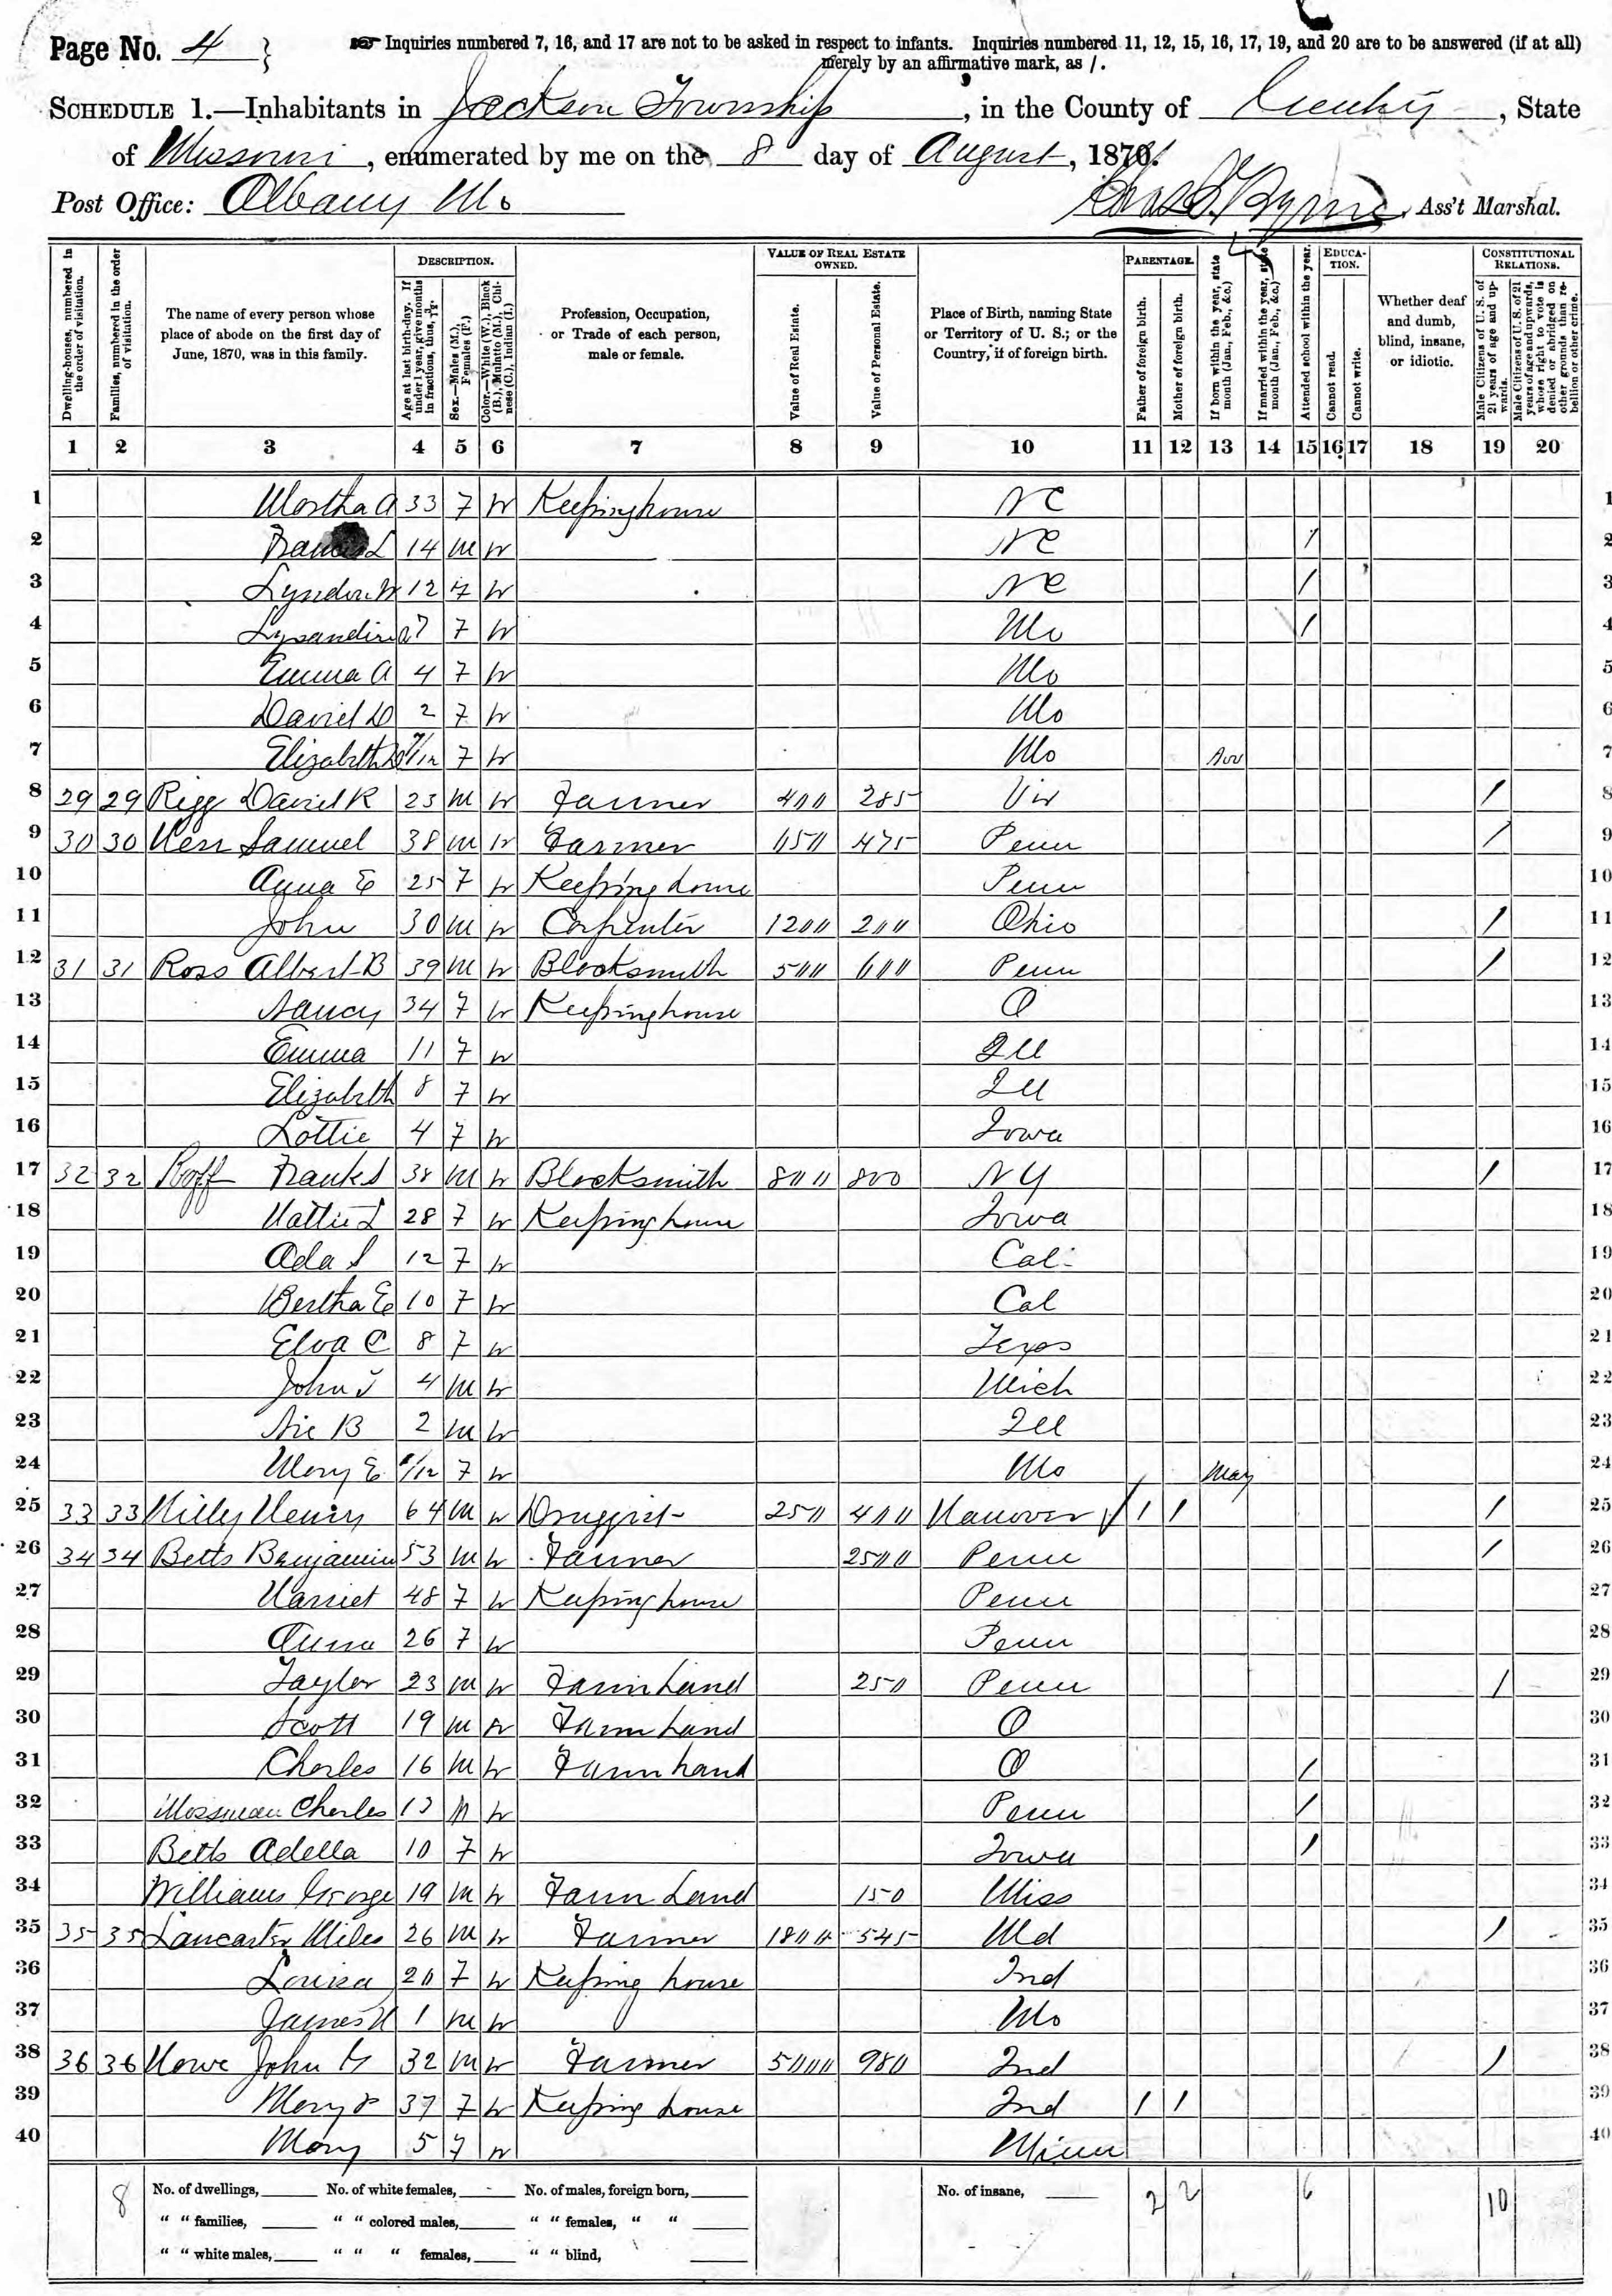 Page No. 4 } ☞ Inquiries numbered 7, 16, and 17 are not to be asked in respect to infants. Inquiries numbered 11, 12, 15, 16, 17, 19, and 20 are to be answered (if at all)
merely by an affirmative mark, as /.
SCHEDULE 1.—Inhabitants in Jackson Township, in the County of Gentry, State
of Missouri, enumerated by me on the 8 day of August, 1870.
Post Office: Albany Mo
Chas S. Byrne, Ass't Marshal.
Dwelling-houses, numbered in the order of visitation.
Families, numbered in the order of visitation.
The name of every person whose place of abode on the first day of June, 1870, was in this family.
DESCRIPTION.
Age at last birth-day. If under 1 year, give months in fractions, thus, 3/12.
Sex.—Males (M.), Females (F.)
Color.—White (W.), Black (B.), Mulatto (M.), Chinese (C.), Indian (I.)
Profession, Occupation, or Trade of each person, male or female.
VALUE OF REAL ESTATE OWNED.
Value of Real Estate.
Value of Personal Estate.
Place of Birth, naming State or Territory of U. S.; or the Country, if of foreign birth.
PARENTAGE.
Father of foreign birth.
Mother of foreign birth.
If born within the year, state month (Jan., Feb., &c.)
If married within the year, state month (Jan., Feb., &c.)
Attended school within the year.
EDUCATION.
Cannot read.
Cannot write.
Whether deaf and dumb, blind, insane, or idiotic.
CONSTITUTIONAL RELATIONS.
Male Citizens of U. S. of 21 years of age and upwards.
Male Citizens of U. S. of 21 years of age and upwards, whose right to vote is denied or abridged on other grounds than rebellion or other crime.
1 2 3 4 5 6 7 8 9 10 11 12 13 14 15 16 17 18 19 20
1 Martha A 33 F W Keeping house NC 1
2 Francis L 14 M W NC / 2
3 12 F W NC / 3
4 7 F W Mo / 4
5 Emma A 4 F W Mo 5
6 David D 2 F W Mo 6
7 Elizabeth /12 F W Mo Nov 7
8 29 29 Rigg David R 23 M W Farmer 400 285 Vir / 8
9 30 30 Kerr Samuel 38 M W Farmer 475 Penn / 9
10 Anna E 25 F W Keeping house Penn 10
11 John 30 M W Carpenter 1200 200 Ohio / 11
12 31 31 Ross Albert B 39 M W Blacksmith 500 600 Penn / 12
13 Nancy 34 F W Keeping house O 13
14 Emma 11 F W Ill 14
15 Elizabeth 8 F W Ill 15
16 Lottie 4 F W Iowa 16
17 32 32 Roff Frank S 38 M W Blacksmith 800 800 NY / 17
18 Hattie L 28 F W Keeping house Iowa 18
19 Ada S 12 F W Cal 19
20 Bertha E 10 F W Cal 20
21 Elva C 8 F W Texas 21
22 John J 4 M W Mich 22
23 B 2 M W Ill 23
24 Mary E /12 F W Mo May 24
25 33 33 Henry 64 M W Druggist 250 400 Hanover / / / 25
26 34 34 Betts Benjamin 53 M W Farmer 2500 Penn / 26
27 Harriet 48 F W Keeping house Penn 27
28 Anna 26 F W Penn 28
29 Taylor 23 M W Farm hand 250 Penn / 29
30 Scott 19 M W Farm hand O 30
31 Charles 16 M W Farm hand O / 31
32 Mossman Charles 13 M W Penn / 32
33 Betts Adella 10 F W Iowa / 33
34 Williams George 19 M W Farm hand 150 Miss 34
35 35 35 Lancaster Miles 26 M W Farmer 1800 545 Md / 35
36 Louisa 20 F W Keeping house Ind 36
37 James H 1 M W Mo 37
38 36 36 Howe John G 32 M W Farmer 5000 980 Ind / 38
39 Mary 37 F W Keeping house Ind / / 39
40 Mary 5 F W Minn 40
8 No. of dwellings, No. of white females, No. of males, foreign born, No. of insane, 2 2 6 10
" " families, " " colored males, " " females, " "
" " white males, " " " females, " " blind,